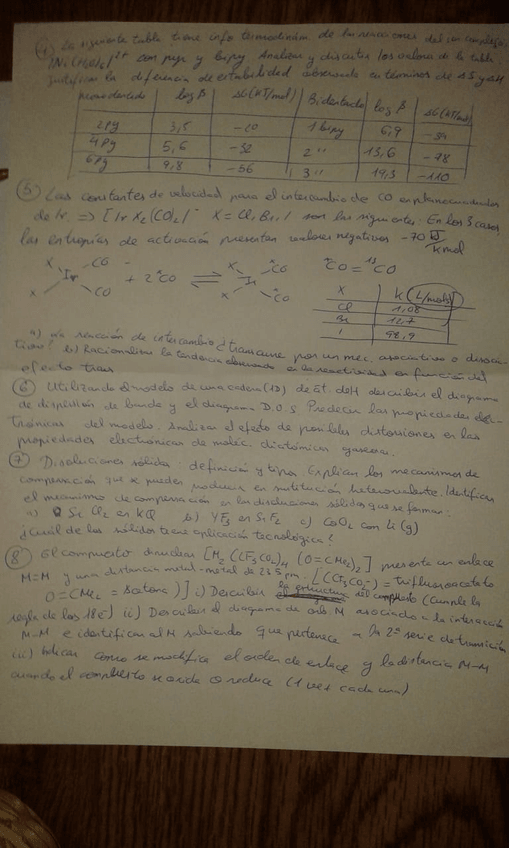 ④ La siguiente tabla tiene info termodinám. de las reacciones del ion complejo
[Ni(H2O)6]2+ con py y bipy. Analizar y discutir los valores de la tabla
Justificar la diferencia de estabilidad observada en términos de ΔS y ΔH
monodentado | log β | ΔG (KJ/mol) | Bidentado | log β | ΔG (KJ/mol)
2py | 3,5 | -20 | 1 bipy | 6,9 | -39
4py | 5,6 | -32 | 2 " | 13,6 | -78
6py | 9,8 | -56 | 3 " | 19,3 | -110
⑤ Las constantes de velocidad para el intercambio de CO en planocuadrados
de Ir ⇒ [Ir X2(CO)2]- X = Cl, Br, I son las siguientes. En los 3 casos
las entropías de activación presentan valores negativos -70 J/K mol
X CO + 2 *CO ⇌ X *CO *CO = 13CO
X Ir CO X Ir *CO
X | k (L/mol s)
Cl | 1,08
Br | 12,7
I | 98,9
a) La reacción de intercambio ¿transcurre por un mec. asociativo o disocia-
tivo? b) Racionalizar la tendencia observada en la reactividad en función del
efecto trans
⑥ Utilizando el modelo de una cadena (1D) de át. de H describir el diagrama
de dispersión de banda y el diagrama D.O.S. Predecir las propiedades elec-
trónicas del modelo. Analizar el efecto de posibles distorsiones en las
propiedades electrónicas de moléc. diatómicas gaseosas.
⑦ Disoluciones sólidas: definición y tipos. Explicar los mecanismos de
compensación que se pueden producir en sustitución heterovalente. Identificar
el mecanismo de compensación en las disoluciones sólidas que se forman:
a) SrCl2 en KCl b) YF3 en SrF2 c) CoO2 con Li(g)
¿Cuál de los sólidos tiene aplicación tecnológica?
⑧ El compuesto dinuclear [M2(CF3CO2)4 (O=CMe2)2] presenta un enlace
M=M y una distancia metal-metal de 235 pm. [(CF3CO2-) = trifluoroacetato
O=CMe2 = acetona)] i) Describir la estructura del compuesto (Cumple la
regla de los 18e) ii) Describir el diagrama de orb M asociado a la interacción
M-M e identificar al M sabiendo que pertenece a la 2ª serie de transición
iii) Indicar cómo se modifica el orden de enlace y la distancia M-M
cuando el compuesto se oxida o reduce (1 vez cada una)